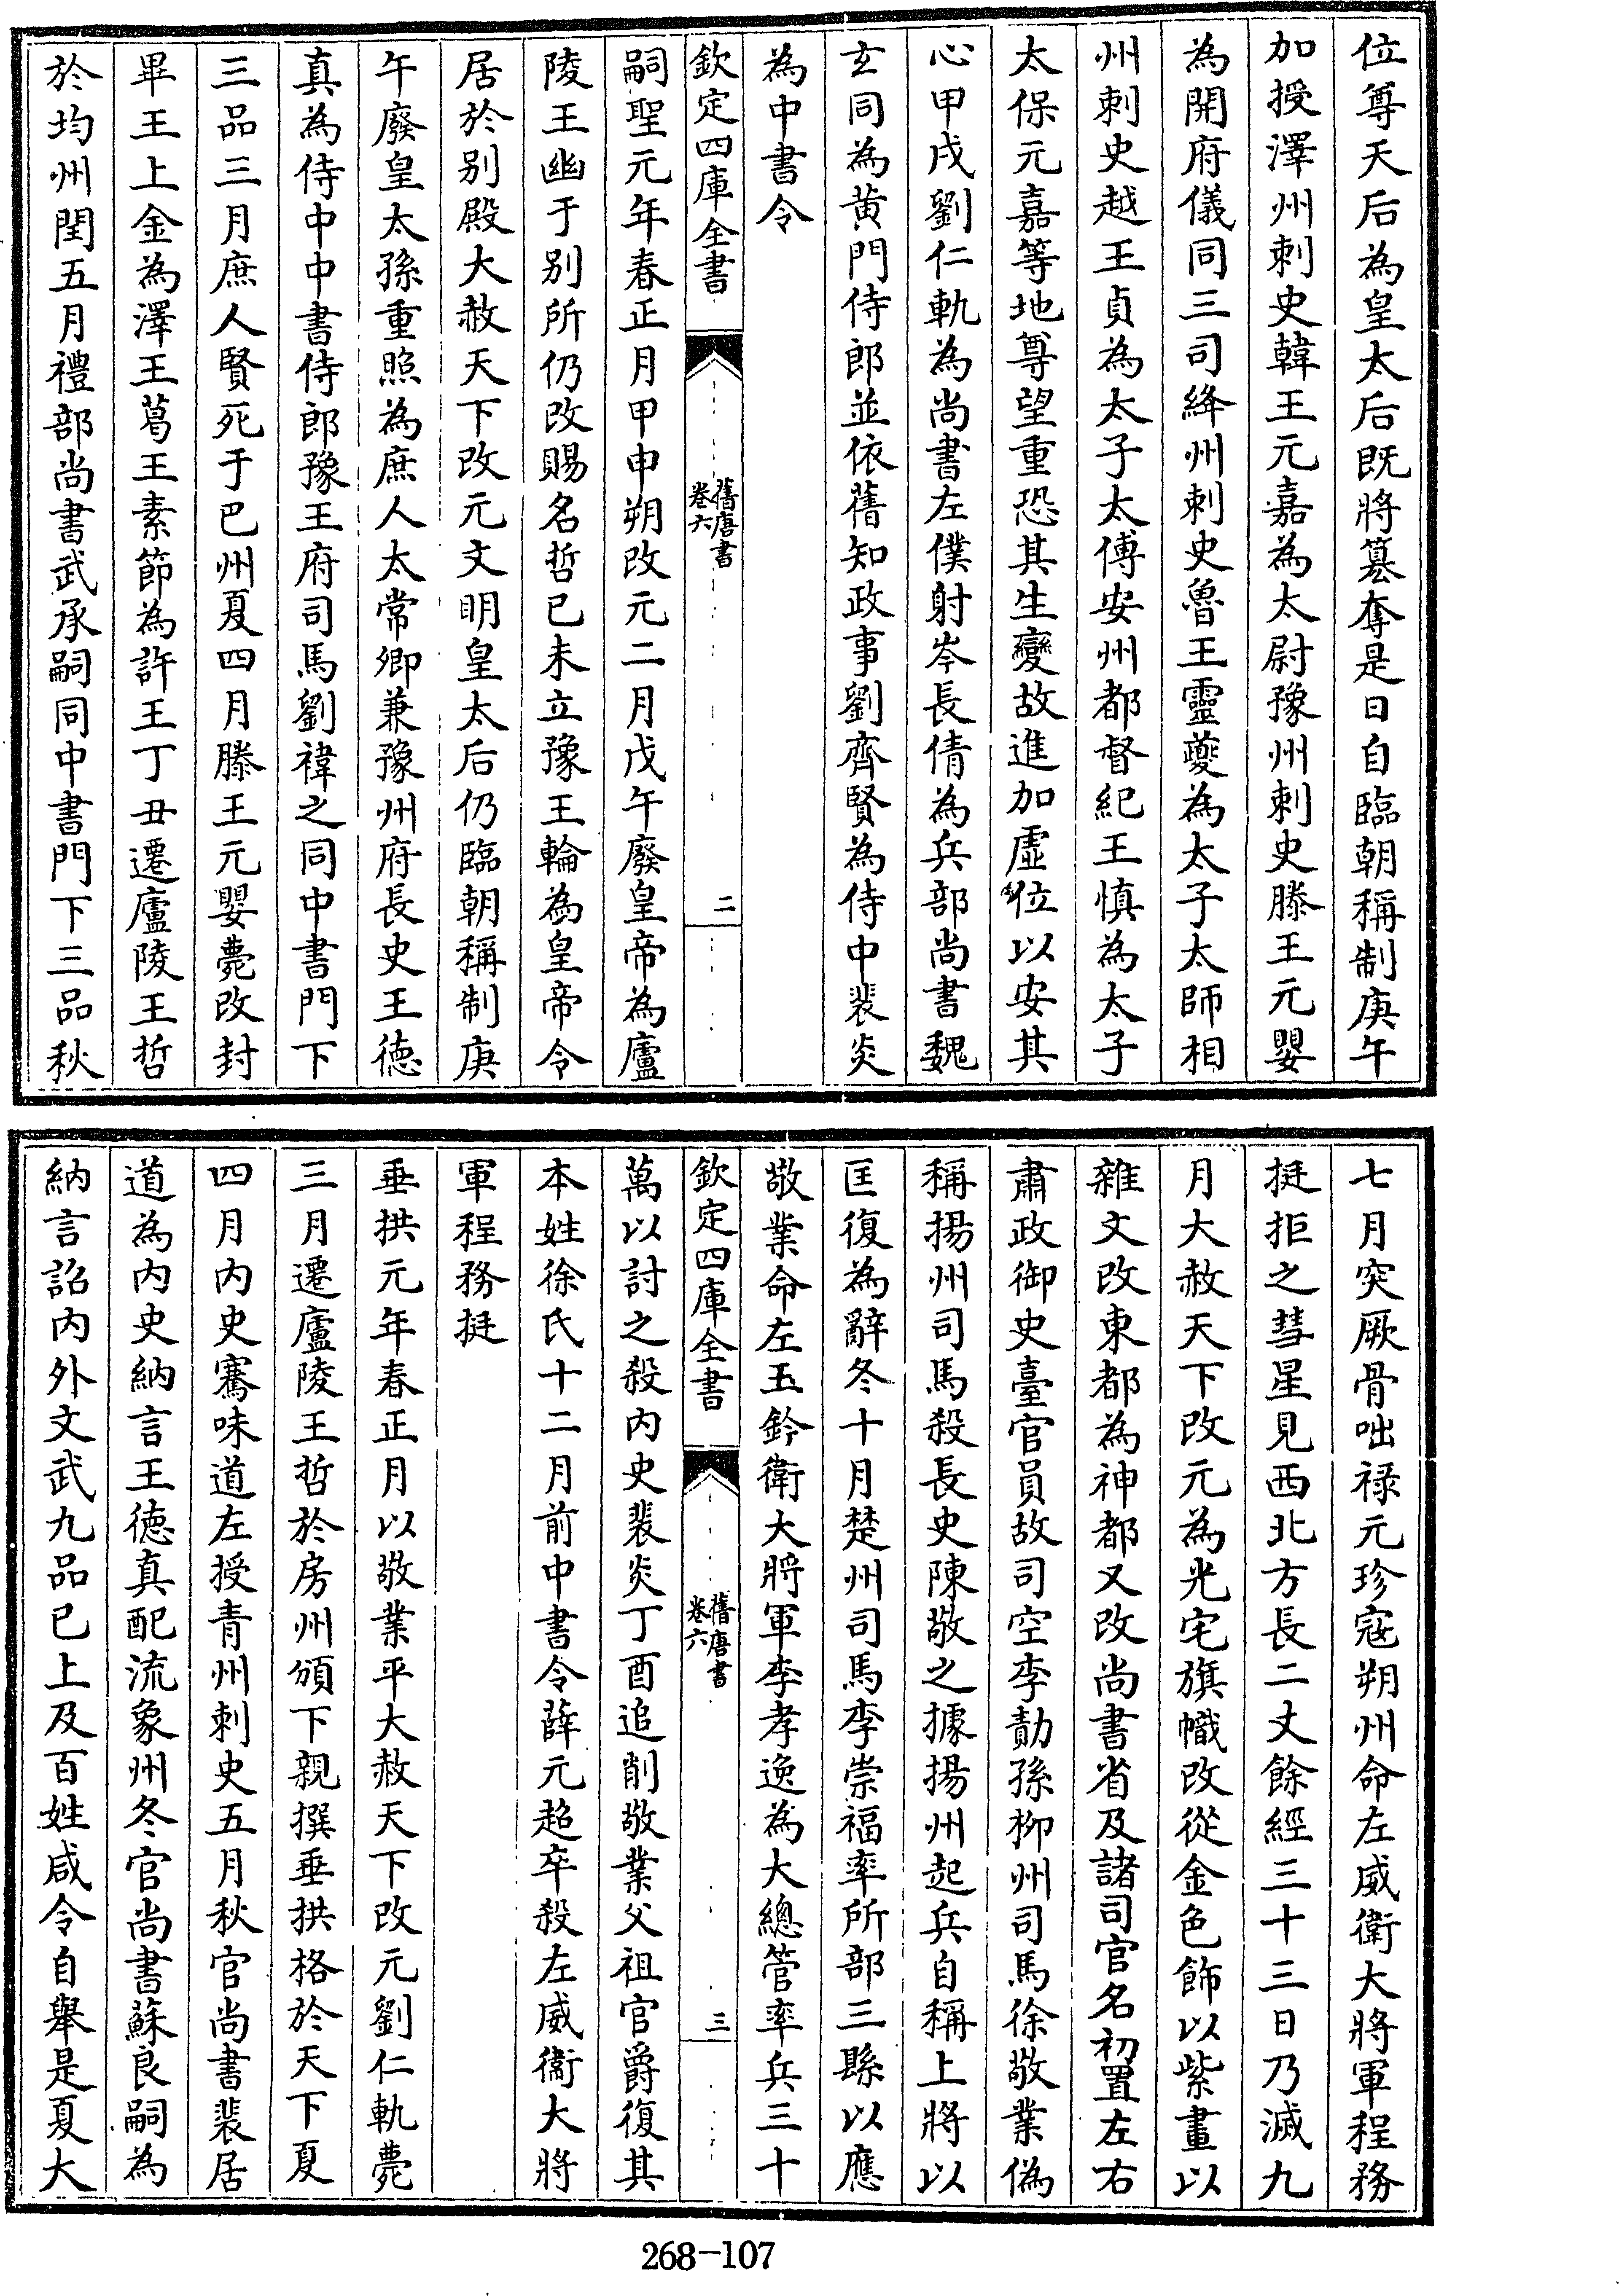 位尊天后為皇太后既將簒奪是日自臨朝稱制庚午
加授澤州刺史韓王元嘉為太尉豫州刺史滕王元嬰
為開府儀同三司絳州刺史魯王靈夔為太子太師相
州刺史越王貞為太子太傅安州都督紀王慎為太子
太保元嘉等地尊望重恐其生變故進加虛位以安其
心甲戌劉仁軌為尚書左僕射岑長倩為兵部尚書魏
玄同為黃門侍郎並依舊知政事劉齊賢為侍中裴炎
為中書令
欽定四庫全書
舊唐書
卷六
二
嗣聖元年春正月甲申朔改元二月戊午廢皇帝為廬
陵王幽于别所仍改賜名哲已未立豫王輪為皇帝令
居於别殿大赦天下改元文明皇太后仍臨朝稱制庚
午廢皇太孫重照為庶人太常卿兼豫州府長史王德
真為侍中中書侍郎豫王府司馬劉禕之同中書門下
三品三月庶人賢死于巴州夏四月滕王元嬰薨改封
畢王上金為澤王葛王素節為許王丁丑遷廬陵王哲
於均州閏五月禮部尚書武承嗣同中書門下三品秋
七月突厥骨咄祿元珍寇朔州命左威衛大將軍程務
挺拒之彗星見西北方長二丈餘經三十三日乃滅九
月大赦天下改元為光宅旗幟改從金色飾以紫畫以
雜文改東都為神都又改尚書省及諸司官名初置左右
肅政御史臺官員故司空李勣孫柳州司馬徐敬業偽
稱揚州司馬殺長史陳敬之據揚州起兵自稱上將以
匡復為辭冬十月楚州司馬李崇福率所部三縣以應
敬業命左玉鈐衛大將軍李孝逸為大總管率兵三十
欽定四庫全書
舊唐書
卷六
三
萬以討之殺内史裴炎丁酉追削敬業父祖官爵復其
本姓徐氏十二月前中書令薛元超卒殺左威衞大將
軍程務挺
垂拱元年春正月以敬業平大赦天下改元劉仁軌薨
三月遷廬陵王哲於房州頒下親撰垂拱格於天下夏
四月内史騫味道左授青州刺史五月秋官尚書裴居
道為内史納言王德真配流象州冬官尚書蘇良嗣為
納言詔内外文武九品已上及百姓咸令自舉是夏大
268-107